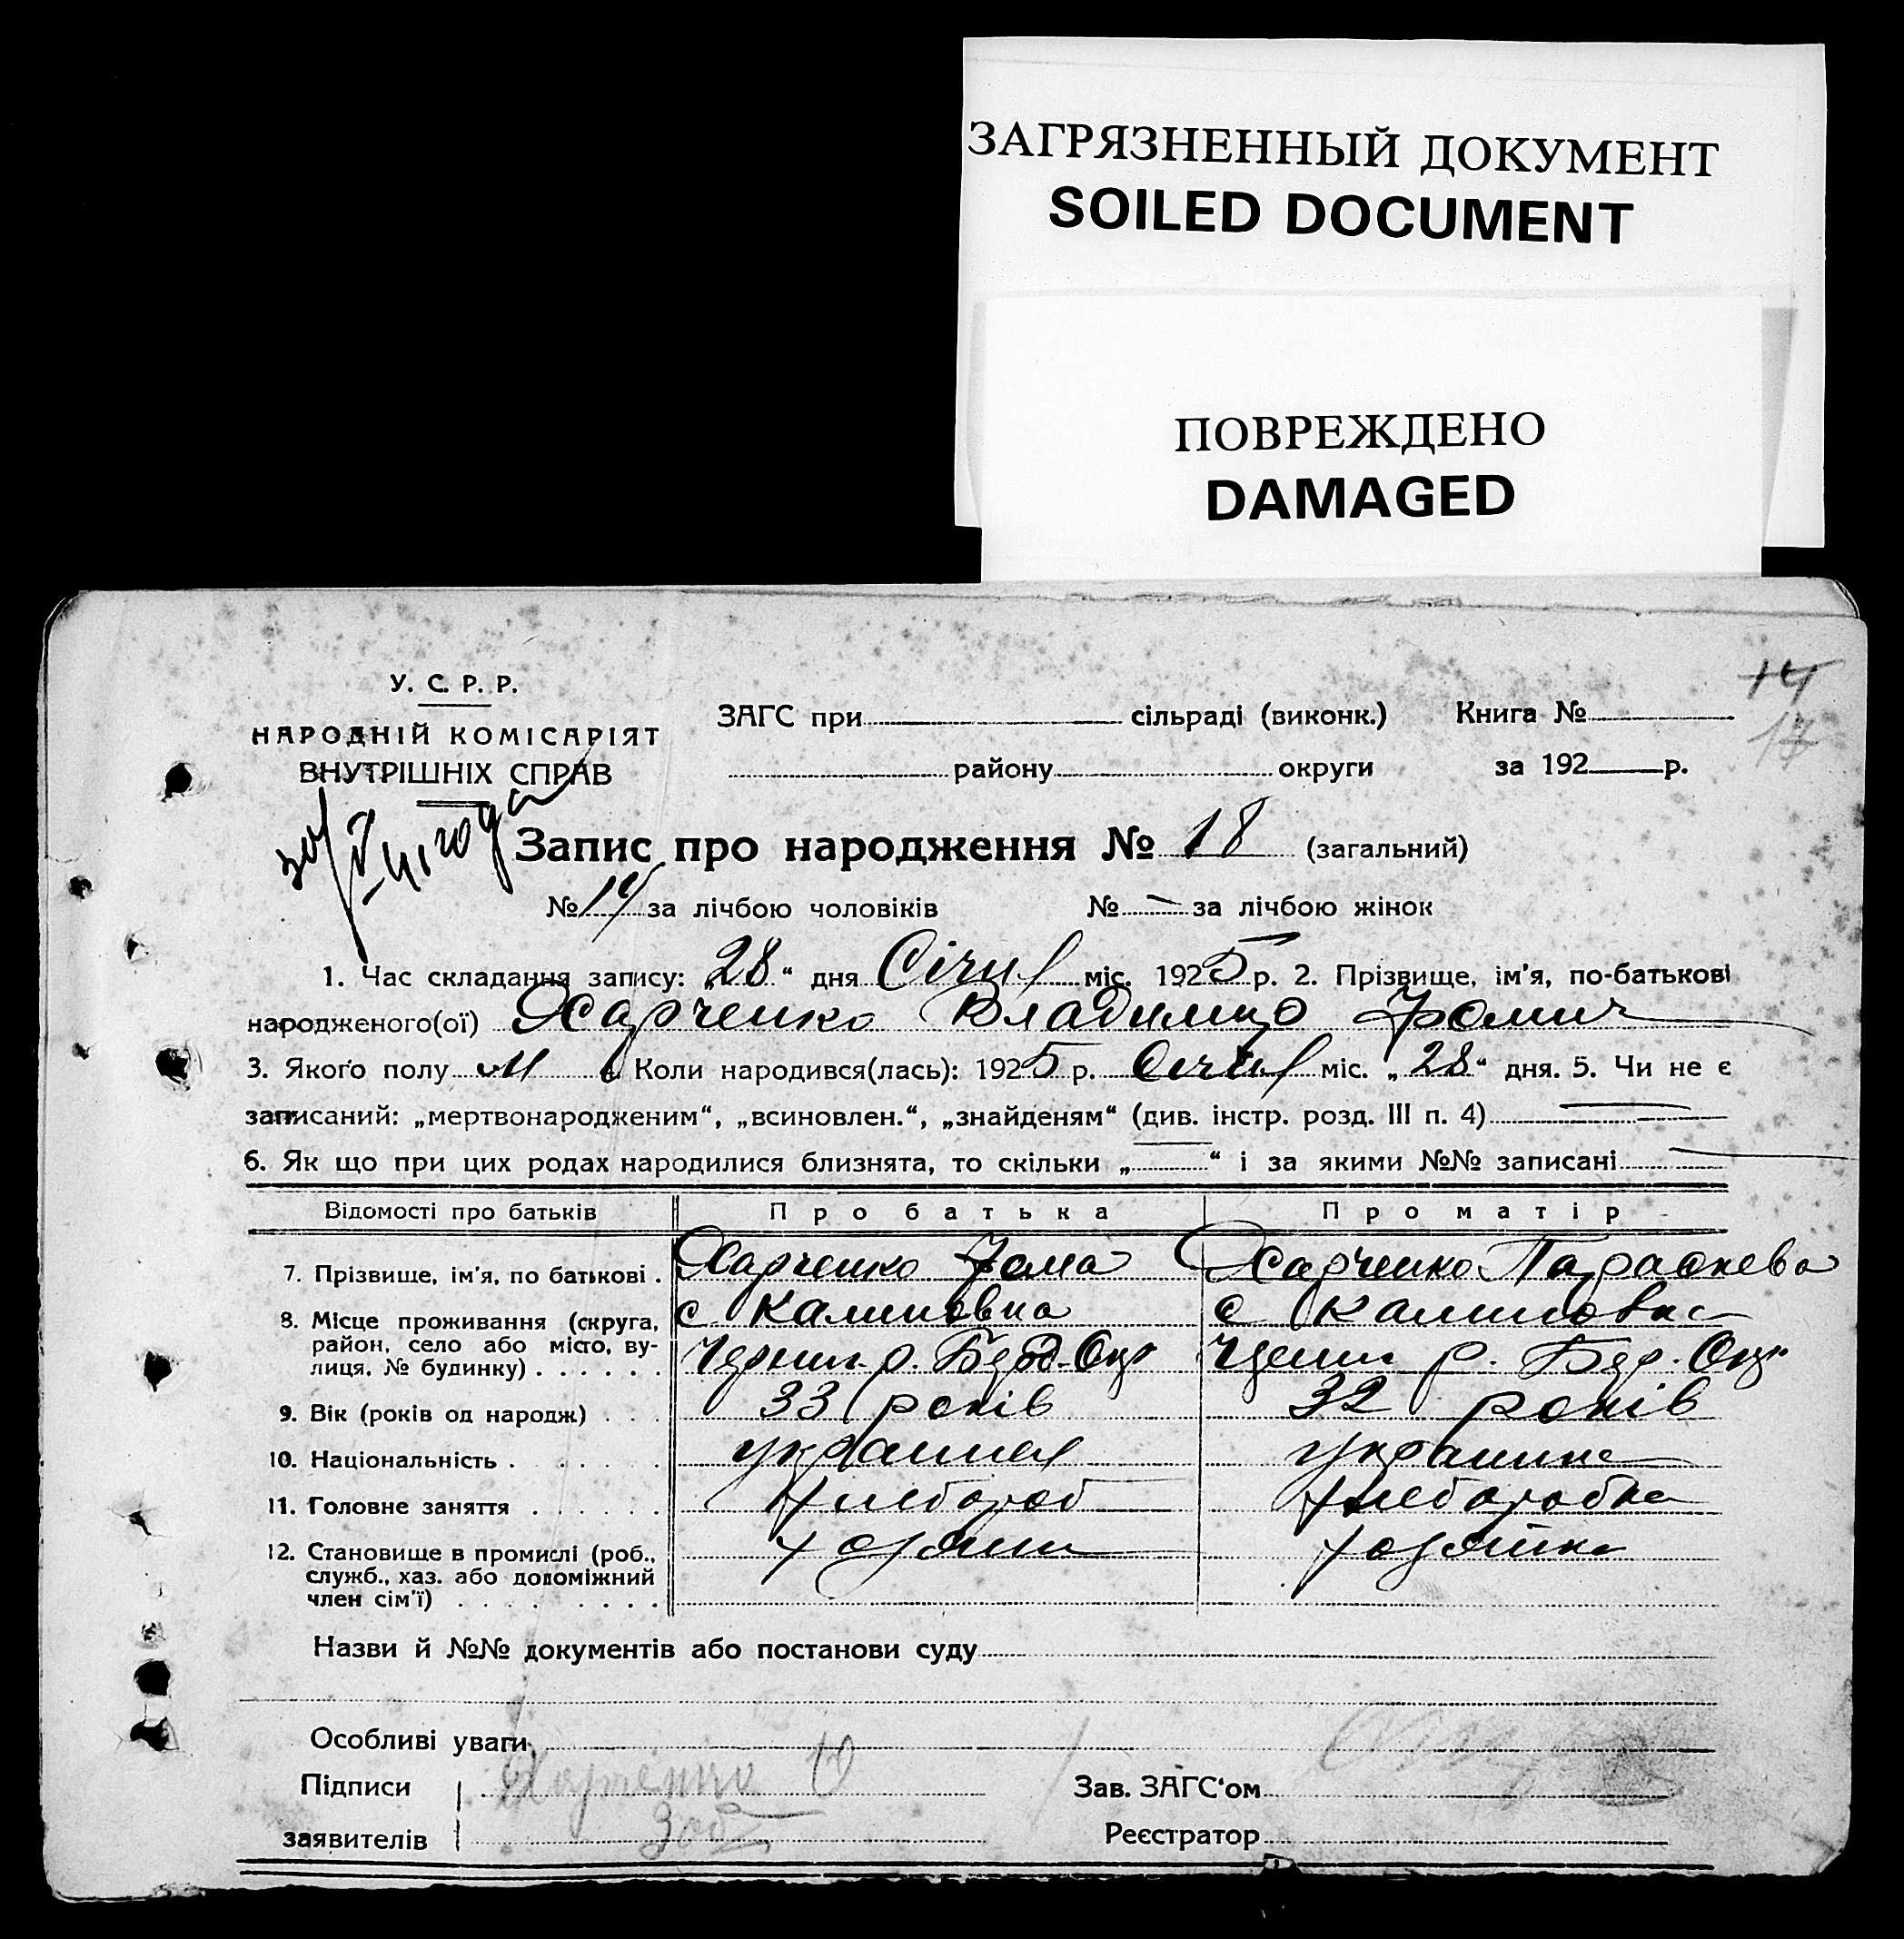 ЗАГРЯЗНЕННЫЙ ДОКУМЕНТ
SOILED DOCUMENT
ПОВРЕЖДЕНО
DAMAGED
14
17
У. С. Р. Р.
НАРОДНІЙ КОМІСАРІЯТ
ВНУТРІШНІХ СПРАВ
ЗАГС при сільраді (виконк.) Книга №
району округи за 192 р.
Запис про народження № 18 (загальний)
№ 14 за лічбою чоловіків № — за лічбою жінок
1. Час складання запису: „28“ дня Січня міс. 1925 р. 2. Прізвище, ім'я, по-батькові
народженого(ої) Харченко Владимир Фомич
3. Якого полу м 4. Коли народився(лась): 1925 р. Січня міс. „28“ дня. 5. Чи не є
записаний: „мертвонародженим“, „всиновлен.“, „знайденям“ (див. інстр. розд. III п. 4) —
6. Як що при цих родах народилися близнята, то скільки „—“ і за якими №№ записані —
Відомості про батьків Про батька Про матір
7. Прізвище, ім'я, по батькові . Харченко Фома Харченко Параскева
8. Місце проживання (округа, с Калиновка с Калиновка
район, село або місто, ву-
лиця, № будинку) . . . . . . р. Берд. Окр р. Бер. Окр.
9. Вік (років од народж) . . . 33 років 32 років
10. Національність . . . . . . . українец українка
11. Головне заняття . . . . . . хлебороб хлеборобка
12. Становище в промислі (роб., хозяин хозяйка
служб., хаз. або допоміжний
член сім'ї) . . . . . . . . .
Назви й №№ документів або постанови суду
Особливі уваги
Підписи Харченко Зав. ЗАГС'ом
заявителів Реєстратор